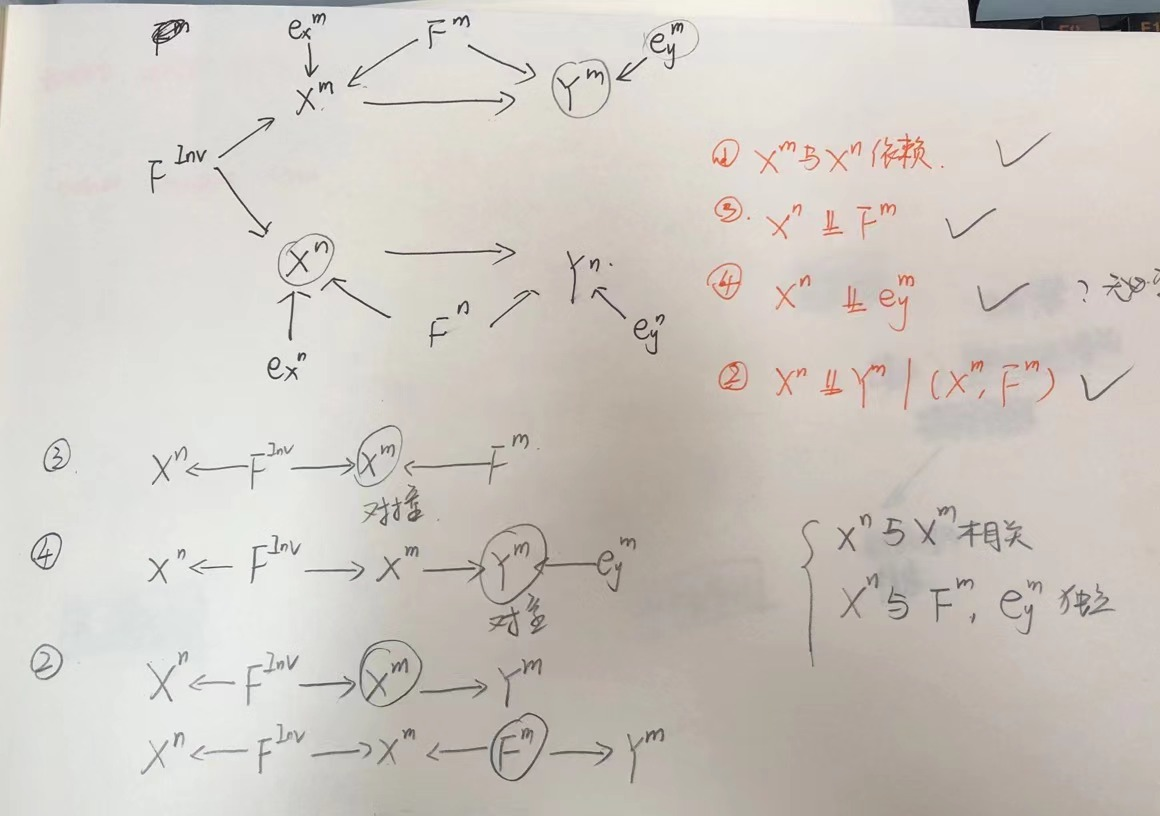 eₓᵐ Fᵐ e_yᵐ
Xᵐ → Yᵐ
F^Inv
① Xᵐ与Xⁿ依赖. ✓
③. Xⁿ ⫫ Fᵐ ✓
Xⁿ → Yⁿ.
④ Xⁿ ⫫ e_yᵐ ✓ ?
Fⁿ e_yⁿ
eₓⁿ
② Xⁿ ⫫ Yᵐ | (Xᵐ, Fᵐ) ✓
③. Xⁿ ← F^Inv → Xᵐ ← Fᵐ.
对撞.
④ Xⁿ ← F^Inv → Xᵐ → Yᵐ ← e_yᵐ
对撞
② Xⁿ ← F^Inv → Xᵐ → Yᵐ
Xⁿ ← F^Inv → Xᵐ ← Fᵐ → Yᵐ
{ Xⁿ与Xᵐ相关
Xⁿ与 Fᵐ, e_yᵐ 独立